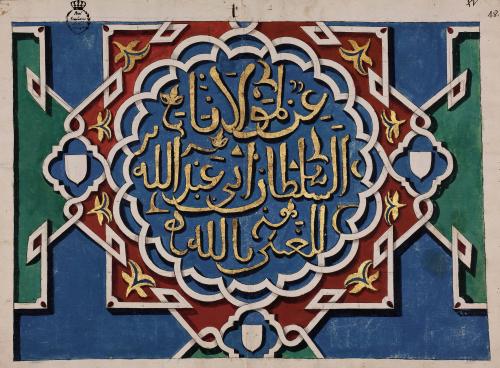 عز لمولانا
السلطان ابي عبد الله
الغني بالله